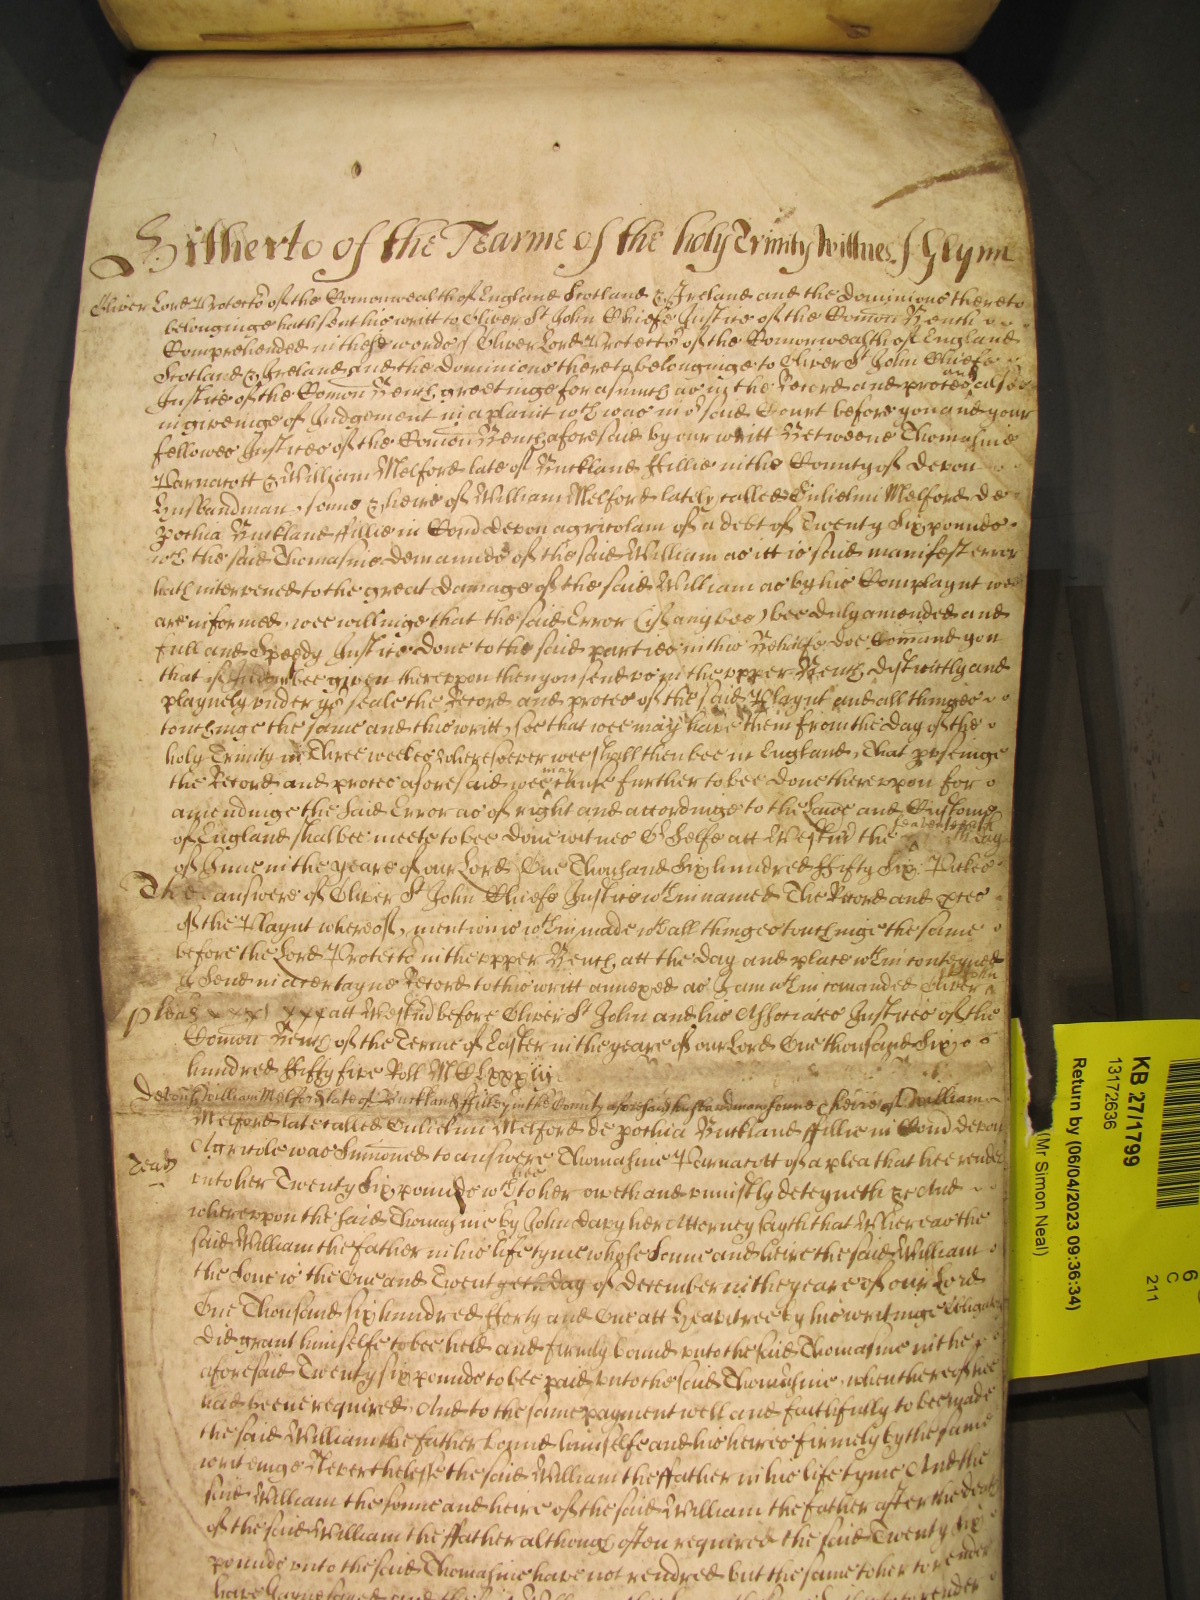 Hitherto of the Tearme of the holy Trinity Wittnes J Glynn
Oliver Lord Protector of the Comonwealth of England Scotland & Ireland and the Dominions thereto
belonginge hath sent his writt to Oliver St John Chiefe Justice of the Comon Bench
Comprehended in these words Oliver Lord Protector of the Comonwealth of England
Scotland & Ireland and the Dominions thereto belonginge to Oliver St John Chiefe
Justice of the Comon Bench greetinge for asmuch as in the Record and proces and alsoe
in giveinge of Judgement in a plaint wch was in or said Court before you and your
fellowes Justices of the Comon Bench aforesaid by our writt Betweene Thomasine
Parnacott & William Melford late of Buckland ffillie in the County of Devon
Husbandman sonne & heire of William Melford lately called Gulielmi Melford de
pochia Buckland ffillie in Com Devon agricolam of a debt of Twenty Six pounds
wch the said Thomasine demaunds of the said William as itt is said manifest error
hath intervened to the great damage of the said William as by his Complaynt wee
are informed wee willinge that the said Error (if any bee) bee duly amended and
full and Speedy Justice done to the said parties in this Behalfe doe Comand you
that if Judgmt bee given thereupon then you send us in the upper Bench distinctly and
playnely under yor seale the Record and proces of the said Playnt and all things
touchinge the same and this writt, soe that wee may have them from the day of the
holy Trinity in Three weekes wheresoever wee shall then bee in England, That pruseinge
the Record and proces aforesaid wee may cause further to bee done thereupon for
amendinge the said Error as of right and accordinge to the Lawe and Custome
of England shalbee meete to bee done witnes Or Selfe att Westmr the
of June in the yeare of our Lord One Thousand Six hundred ffifty Six
The answere of Oliver St John Chiefe Justice wthin named The Record and proces
of the Playnt whereof mention is wthin made wth all things touchinge the same
before the Lord Protector in the upper Bench att the day and place wthin conteyned
I Send in a certayne Record to this writt annexed as I am wthin comanded Oliver St John
Pleas att Westmr before Oliver St John and his Associates Justices of the
Comon Bench of the Terme of Easter in the yeare of our Lord One thousand Six
hundred ffifty five Roll
Devon William Melford late of Buckland ffilley in the County aforesaid husbandman sonne & heire of William
Melford late called Gulielmi Melford de pochia Buckland ffillie in Com Devon
Agricole was sumoned to answere Thomasine Parnacott of a plea that hee render
unto her Twenty Six pounds wch hee to her oweth and uniustly deteyneth &c And
whereupon the said Thomasine by John Davy her Attorney sayth that Whereas the
said William the father in his life tyme whose Sonne and heire the said William
the Sone is the One and Twentyeth day of December in the yeare of our Lord
One Thousand six hundred fforty and One att Heavitree by his writinge
did grant himselfe to bee held and firmly bound unto the said Thomasine in the
aforesaid Twenty six pounds to bee paid unto the said Thomasine when thereof hee
had beene required And to the same payment well and faithfully to bee made
the said William the father bound himselfe and his heires firmely by the same
writeinge Neverthelesse the said William the ffather in his life tyme And the
said William the sonne and heire of the said William the father after the death
of the said William the ffather although often required the said Twenty Six
pounds unto the said Thomasine have not rendred but the same to her to render
KB 27/1799
13172636
Return by (06/04/2023 09:36:34)
(Mr Simon Neal)
6
C
211